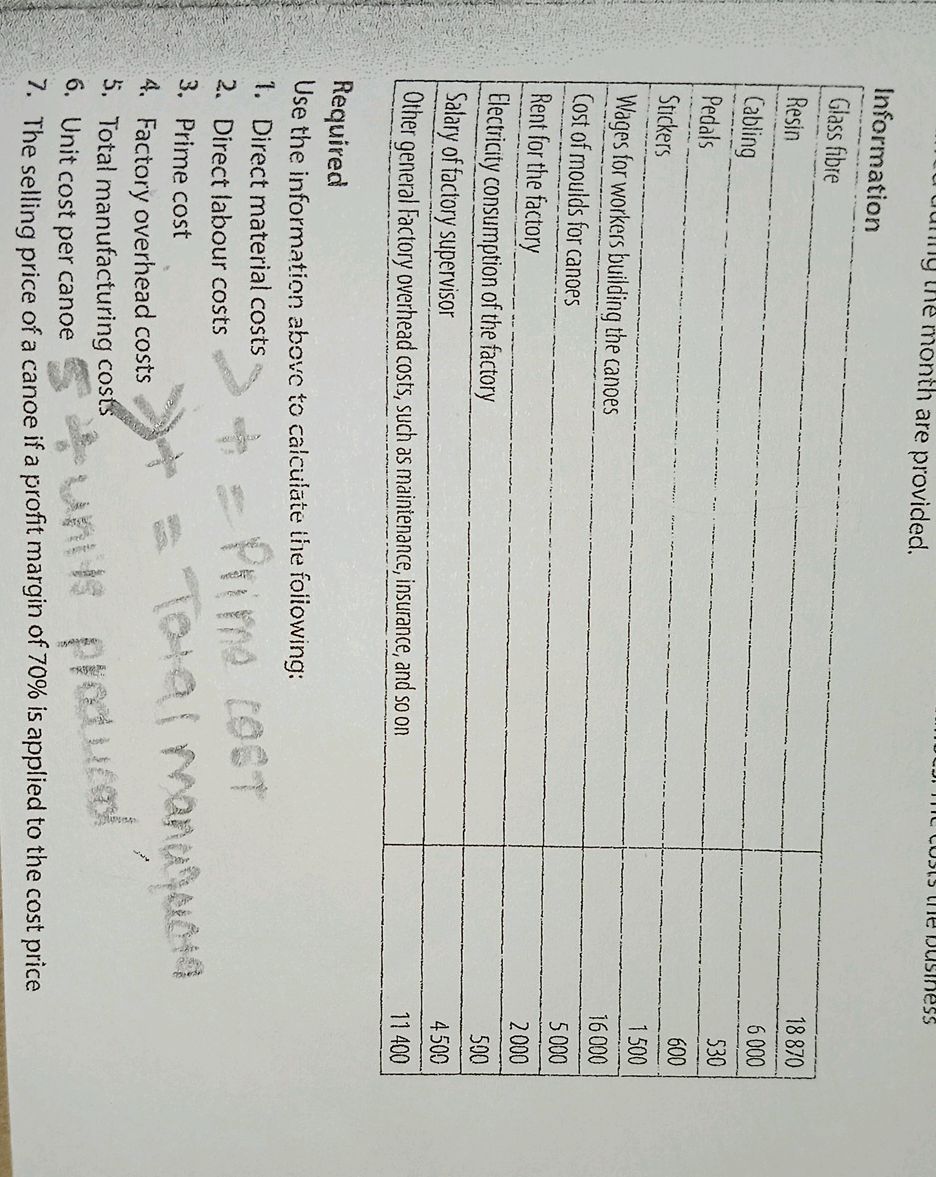 The costs the business
during the month are provided.
Information
Glass fibre 18 870
Resin 6 000
Cabling 530
Pedals 600
Stickers 1 500
Wages for workers building the canoes 16 000
Cost of moulds for canoes 5 000
Rent for the factory 2 000
Electricity consumption of the factory 500
Salary of factory supervisor 4 500
Other general Factory overhead costs, such as maintenance, insurance, and so on 11 400
Required
Use the information above to calculate the following:
1. Direct material costs
2. Direct labour costs > + = Prime cost
3. Prime cost
4. Factory overhead costs > + = Total
5. Total manufacturing costs
6. Unit cost per canoe 5 ÷ units produced
7. The selling price of a canoe if a profit margin of 70% is applied to the cost price